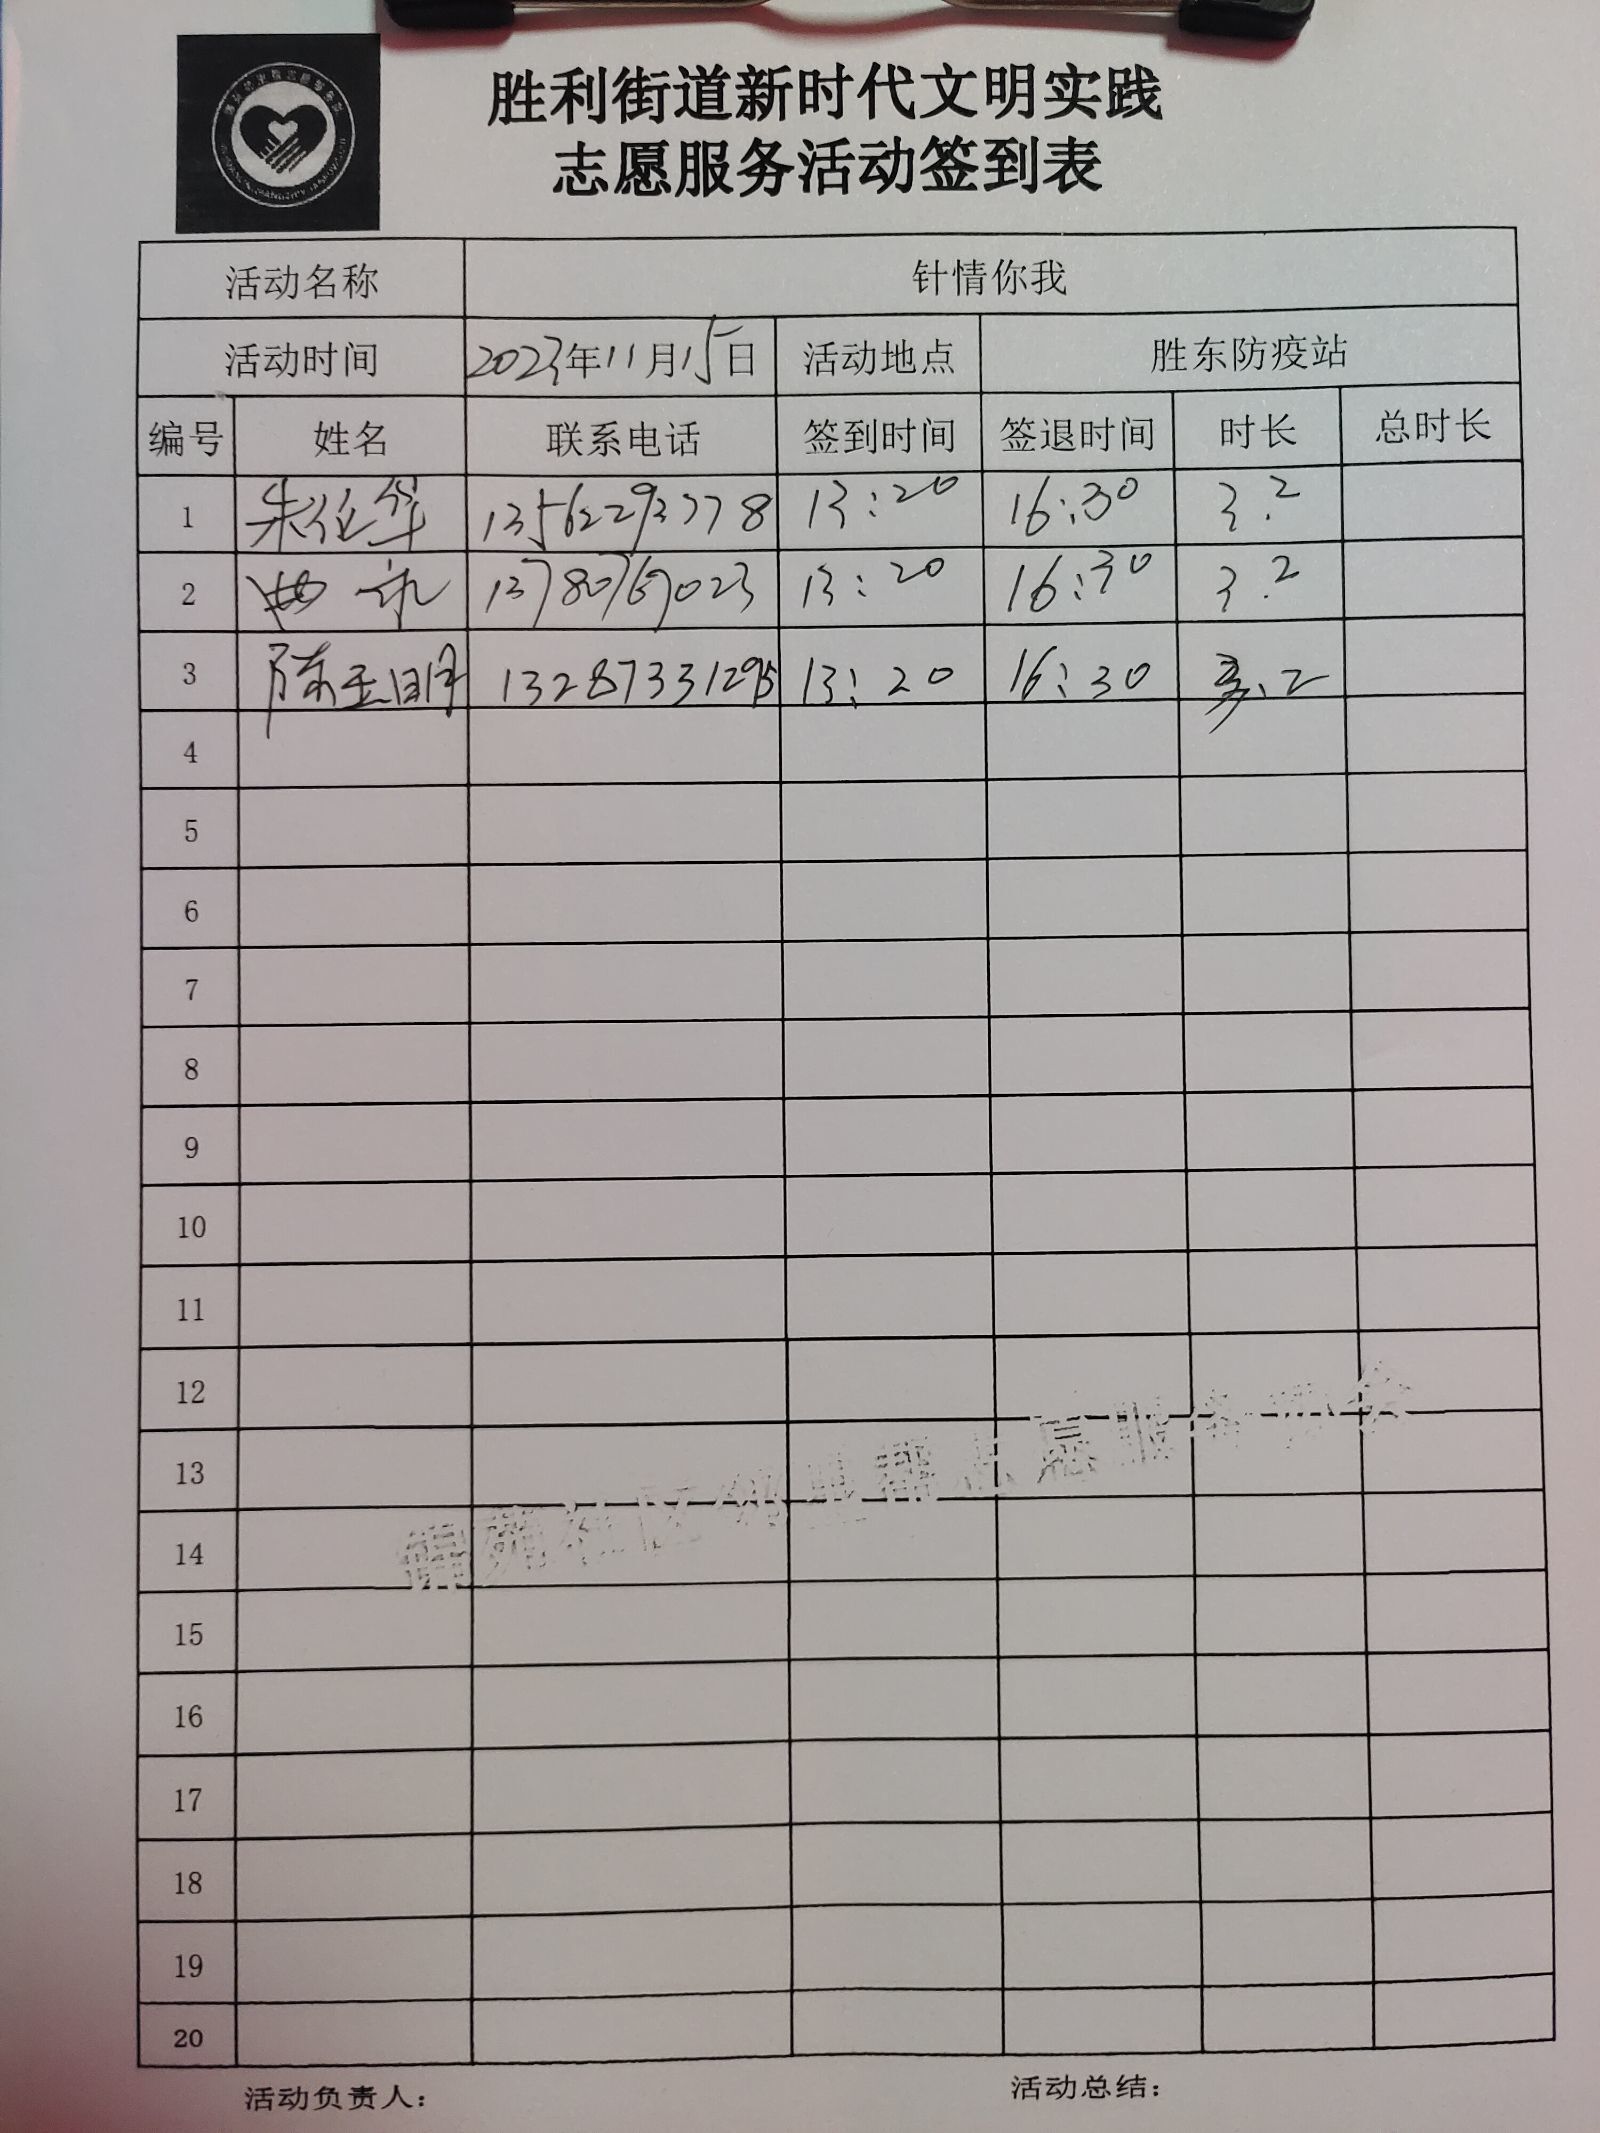 胜利街道新时代文明实践
志愿服务活动签到表
活动名称 针情你我
活动时间 2023年11月15日 活动地点 胜东防疫站
编号 姓名 联系电话 签到时间 签退时间 时长 总时长
1 13562293778 13:20 16:30 3.2
2 曲 13780769023 13:20 16:30 3.2
3 陈玉明 13287331295 13:20 16:30 3.2
4
5
6
7
8
9
10
11
12
13
14
15
16
17
18
19
20
活动负责人： 活动总结：